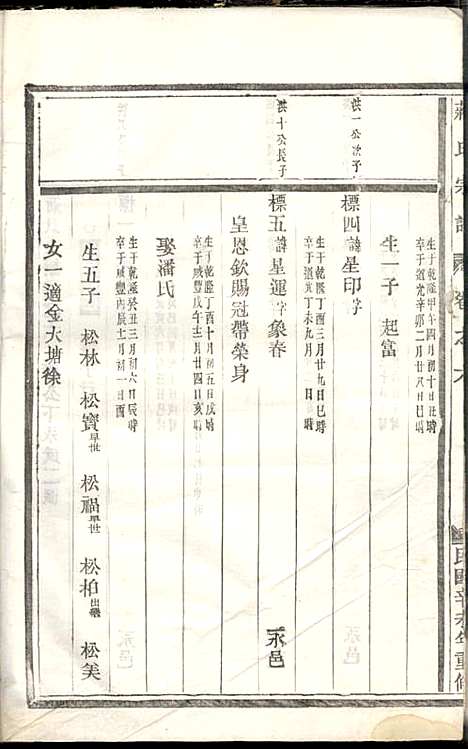 氏宗譜 卷之
民國辛未年重修
生于乾隆甲午四月初十日丑時
卒于道光辛卯二月廿八日巳時
生一子 起富
洪一公次子
標四諱星印字
生于乾隆丁酉三月廿九日巳時
卒于道光丁未九月 日 時
洪十公長子
標五諱星運字象春 永邑
皇恩欽賜冠帶榮身
生于乾隆丁酉十月初五日戌時
卒于咸豐戊午十二月廿四日亥時
娶潘氏
生于乾隆癸丑三月初六日辰時
卒于咸豐丙辰三月初一日酉
生五子 松林 松寶早世 松福早世 松柏出繼 松美
女一適金大塘徐